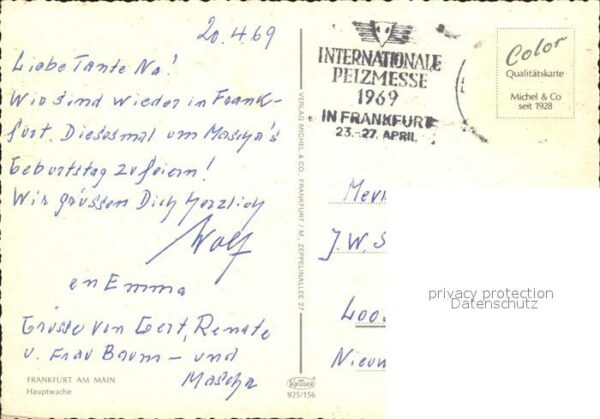 20.4.69
Liebe Tante Na!
Wir sind wieder in Frank-
furt. Diesesmal um Mascha's
Geburtstag zu feiern!
Wir grüssen Dich herzlich
Wolf
en Emma
Grüsse von Gert, Renate
u. Frau Baum – und
Mascha
FRANKFURT AM MAIN
Hauptwache
VERLAG MICHEL & CO., FRANKFURT / M., ZEPPELINALLEE 27
Krüger
925/156
INTERNATIONALE
PELZMESSE
1969
IN FRANKFURT
23.-27. APRIL
Color
Qualitätskarte
Michel & Co
seit 1928
J.W. S
privacy protection
Datenschutz